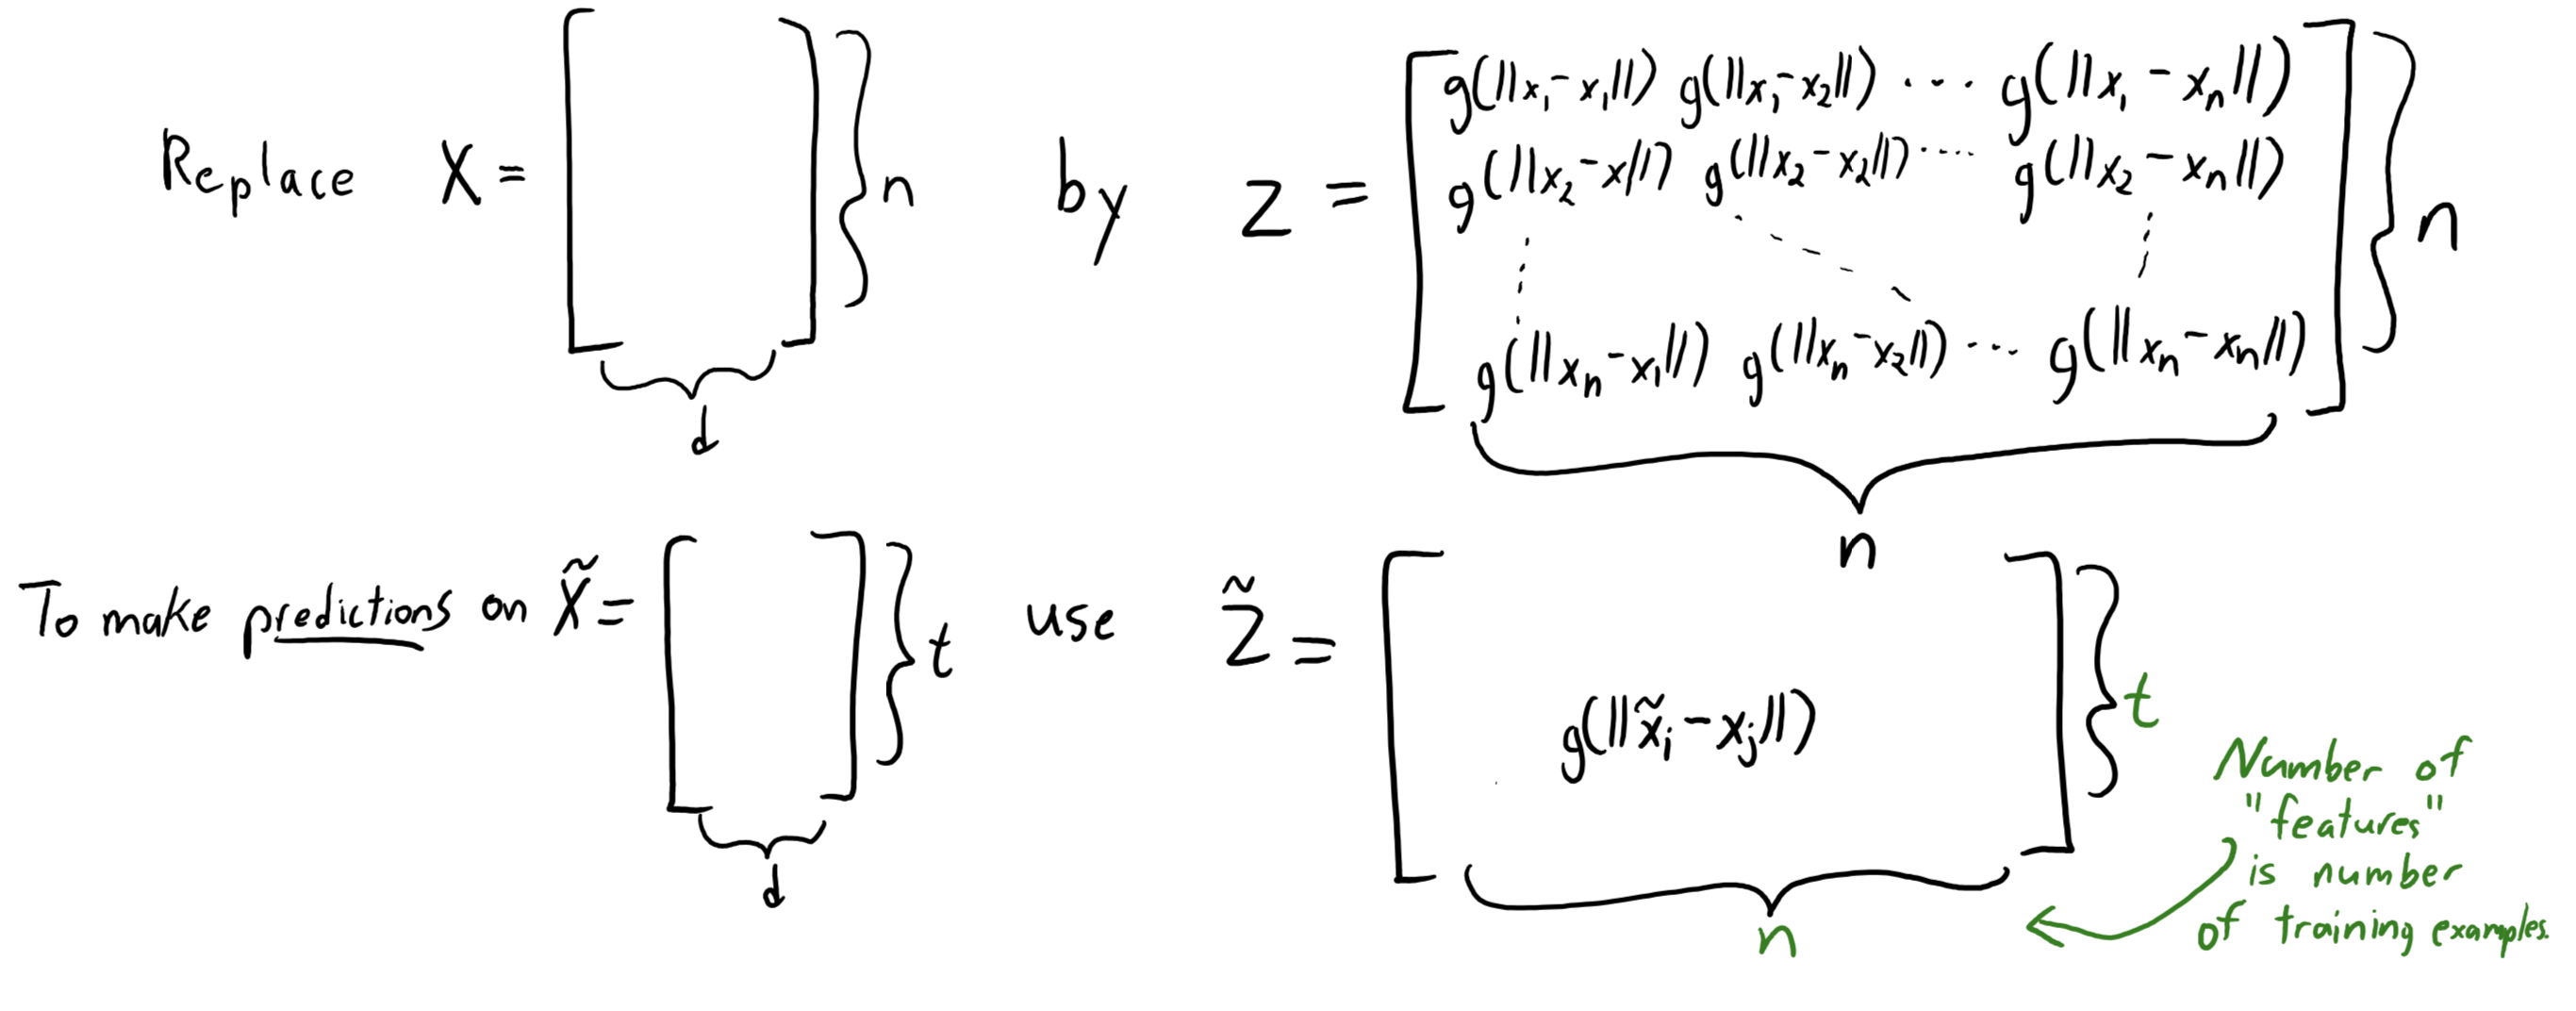 Replace X = [ ] } n by Z = [ g(||x₁-x₁||) g(||x₁-x₂||) ... g(||x₁-xₙ||)
g(||x₂-x₁||) g(||x₂-x₂||) .... g(||x₂-xₙ||)
g(||xₙ-x₁||) g(||xₙ-x₂||) ... g(||xₙ-xₙ||) ] } n
d
n
To make predictions on X̃ = [ ] } t use Z̃ = [ g(||x̃ᵢ-xⱼ||) ] } t
d
n
Number of
"features"
is number
of training examples.